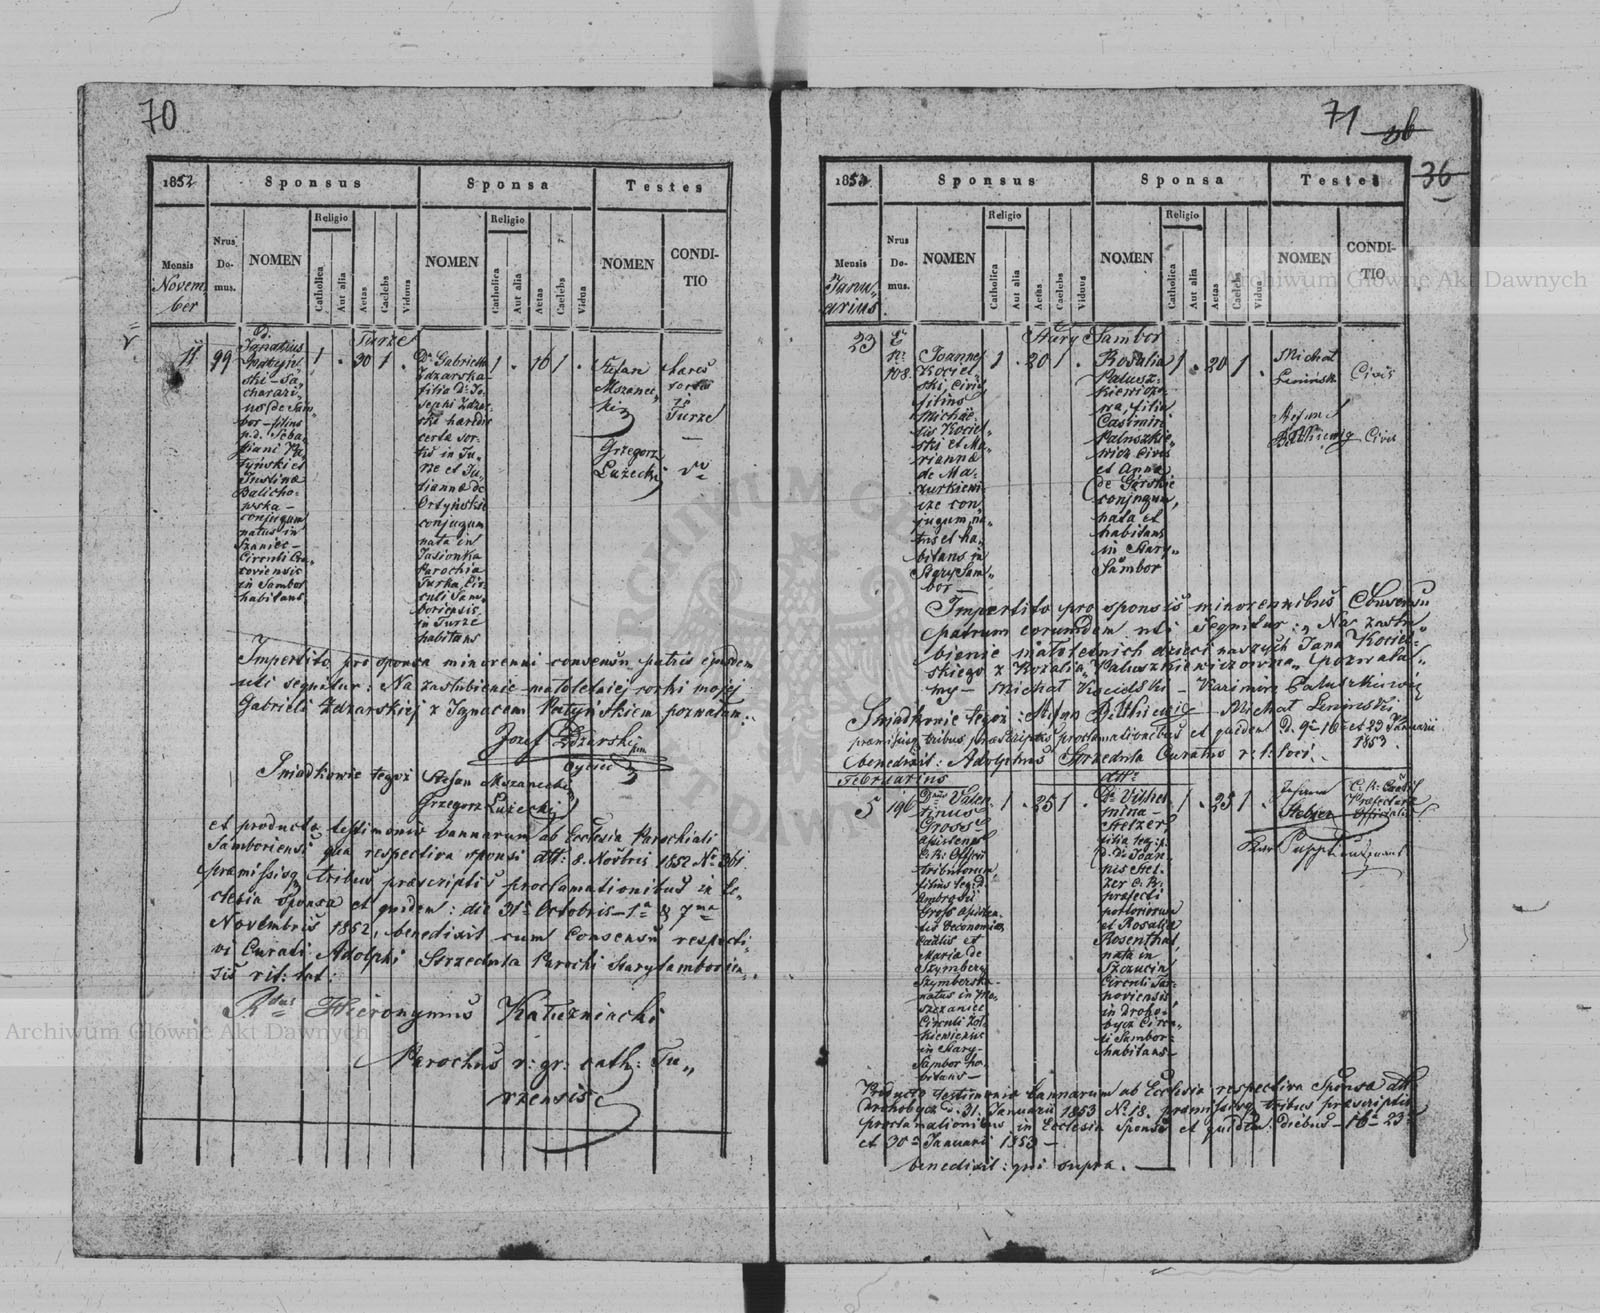 70
1852
Sponsus
Sponsa
Testes
Mensis
Novem
ber
Nrus
Do-
mus.
NOMEN
Religio
Catholica
Aut alia
Aetas
Caelebs
Viduus
NOMEN
Religio
Catholica
Aut alia
Aetas
Caelebs
Vidua
NOMEN
CONDI-
TIO
Turze
11
99
D.
Ignatius
ski
bor filius
p.d. Seba
stiani
Justinae
conjugum
natus in
Circuli
coviensis
in Sambor
habitans
1 . 30 1 .
Dna Gabriella
Zdzarska
filia D. Jo
sephi Zdzar
ski haredis
certa sor
tis in Tu
rze et Ju
lianna de
Ortyńskie
conjugum
nata in
Jasionka
Parochia
Turka Cir
culi Sam
boriensis
in Turze
habitans
1 . 16 1 .
Stefan
Mszanec
ki
Grzegorz
Łużecki
hares
sortis
in
Turze
Impertito pro sponsa minorenni consensu patris ejusdem
uti sequitur: Na zaślubienie małoletniej córki mojej
Gabrieli Zdzarskiej z Ignacem Ratyńskiem pozwalam
Józef Zdzarski
oyciec
Świadkowie tegoż Stefan Mszanecki
Grzegorz Łużecki
et producto testimonio bannorum ab Ecclesia Parochiali
Samboriensi qua respectiva sponsi ddto: 8. Novbris 1852 No 361
praemissisq tribus praescriptis proclamationibus in Ec
clesia sponsa et quidem: die 31a Octobris 1a & 7ma
Novembris 1852, benedixit cum consensu respecti
vi Curati Adolphi Strzechuta Parochi Starysamborien
sis rit: lat:
Rdus Hieronymus Katuzniacki
Parochus r: gr: cath: Tu
rzensis
71
36
1853
Sponsus
Sponsa
Testes
Mensis
Janu
arius
Nrus
Do-
mus.
NOMEN
Religio
Catholica
Aut alia
Aetas
Caelebs
Viduus
NOMEN
Religio
Catholica
Aut alia
Aetas
Caelebs
Vidua
NOMEN
CONDI-
TIO
Stary Sambor
23
108
Joannes
Kociel
ski Civis
filius
Michae
lis Kociel
ski et Ma
rianna
de Ma
zurkiewi
cze con
jugum na
tus et ha
bitans in
Stary Sam
bor
1 . 20 1 .
Rosalia
Palusz
kiewiczo
wna, filia
Casimiri
Paluszkie
wicz Civis
et Anna
de Górskie
conjugum,
nata et
habitans
in Stary
Sambor
1 . 20 1 .
Michał
Leninski
Civis
Civis
Impertito pro sponsis minorennibus Consensu
patrum eorumdem uti sequitur: Na zaślu
bienie małoletnich dzieci naszych Jana Kociel
skiego z Rozalią Paluszkiewiczówną pozwala
my Michał Kocielski Kazimirz Paluszkiewicz
Świadkowie tegoż: Michał Leninski
praemissisq tribus praescriptis proclamationibus et quidem D. 9a 16a et 23 Januarii
1853
benedixit: Adolphus Strzechuta Curatus r: l: loci.
Februarius
ddto
5
196
Dnus Valen
tinus
Gross
assistens
C. R. Officii
tributorum,
filius leg: D.
Ambrosii
Gross
Maria de
Szymberg
Szymberska
natus in Mo
szczanice
Circuli Żół
kiewiensis
in Stary
Sambor ha
bitans
1 . 25 1 .
Dna Vilhel
mina
Stelzer
filia leg: p:
D. D. Joan
nis Stel
zer C. R.
praefecti
et Rosalia
Rosenthal,
nata in
Szczucin
Circuli Tar
noviensis,
in Droho
bycz Circu
li Sambor
habitans
1 . 25 1 .
Stelzer
C. R.
Praefectura
Officialis
Producto testimonio bannorum ab Ecclesia respectiva Sponsa ddto
Drohobycz d. 31. Januarii 1853 No 18. praemissisq tribus praescriptis
proclamationibus in Ecclesia Sponsi et quidem: diebus 16a 23a
et 30a Januarii 1853
benedixit: qui supra.
Archiwum Główne Akt Dawnych
Archiwum Główne Akt Dawnych